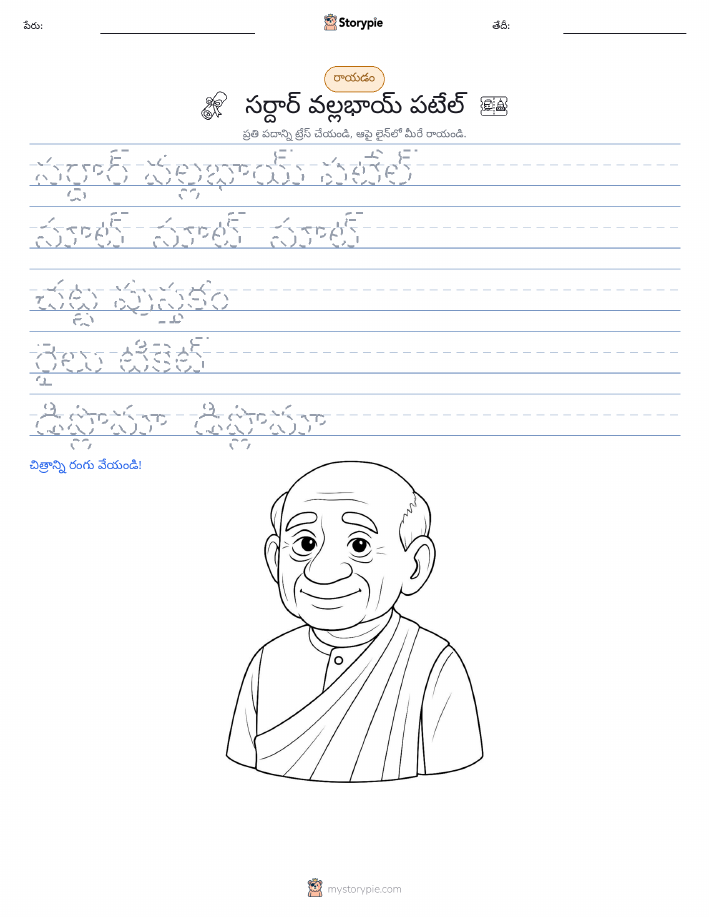 పేరు:
Storypie
తేదీ:
రాయడం
సర్దార్ వల్లభాయ్ పటేల్
ప్రతి పదాన్ని ట్రేస్ చేయండి, ఆపై లైన్‌లో మీరే రాయండి.
సర్దార్ వల్లభాయ్ పటేల్
సూట్ సూట్ సూట్
చట్ట పుస్తకం
రైలు టికెట్
డిప్లొమా డిప్లొమా
చిత్రాన్ని రంగు వేయండి!
mystorypie.com